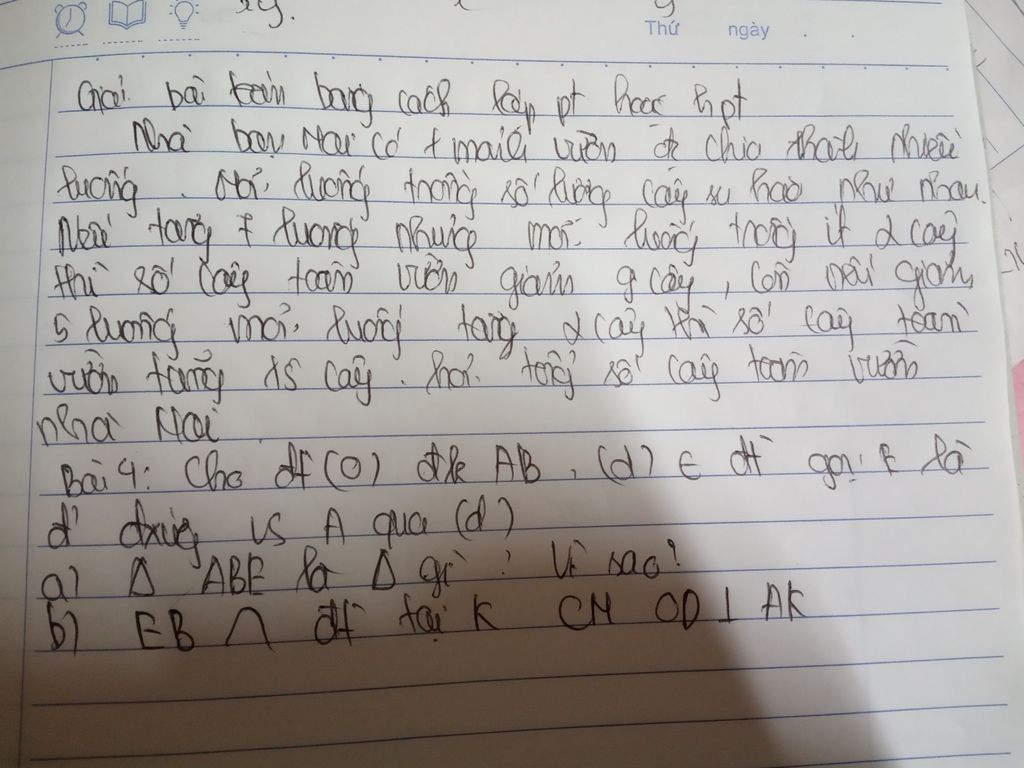 Thứ ngày . .
Giải bài toán bằng cách lập pt hoặc hpt
Nhà bạn Mai có 1 mảnh vườn đc chia thành nhiều
luống . Mỗi luống trồng số lượng cây su hào như nhau.
Nếu tăng 7 luống nhưng mỗi luống trồng ít 2 cây
thì số cây toàn vườn giảm 9 cây , còn nếu giảm
5 luống mỗi luống tăng 2 cây thì số cây toàn
vườn tăng 15 cây . Hỏi tổng số cây toàn vườn
nhà Mai
Bài 4: Cho đt (O) đk AB , (d) ∈ đt gọi E là
đ' đxứng vs A qua (d)
a) Δ ABE là Δ gì ? Vì sao?
b) EB ∩ đt tại K CM OD ⊥ AK